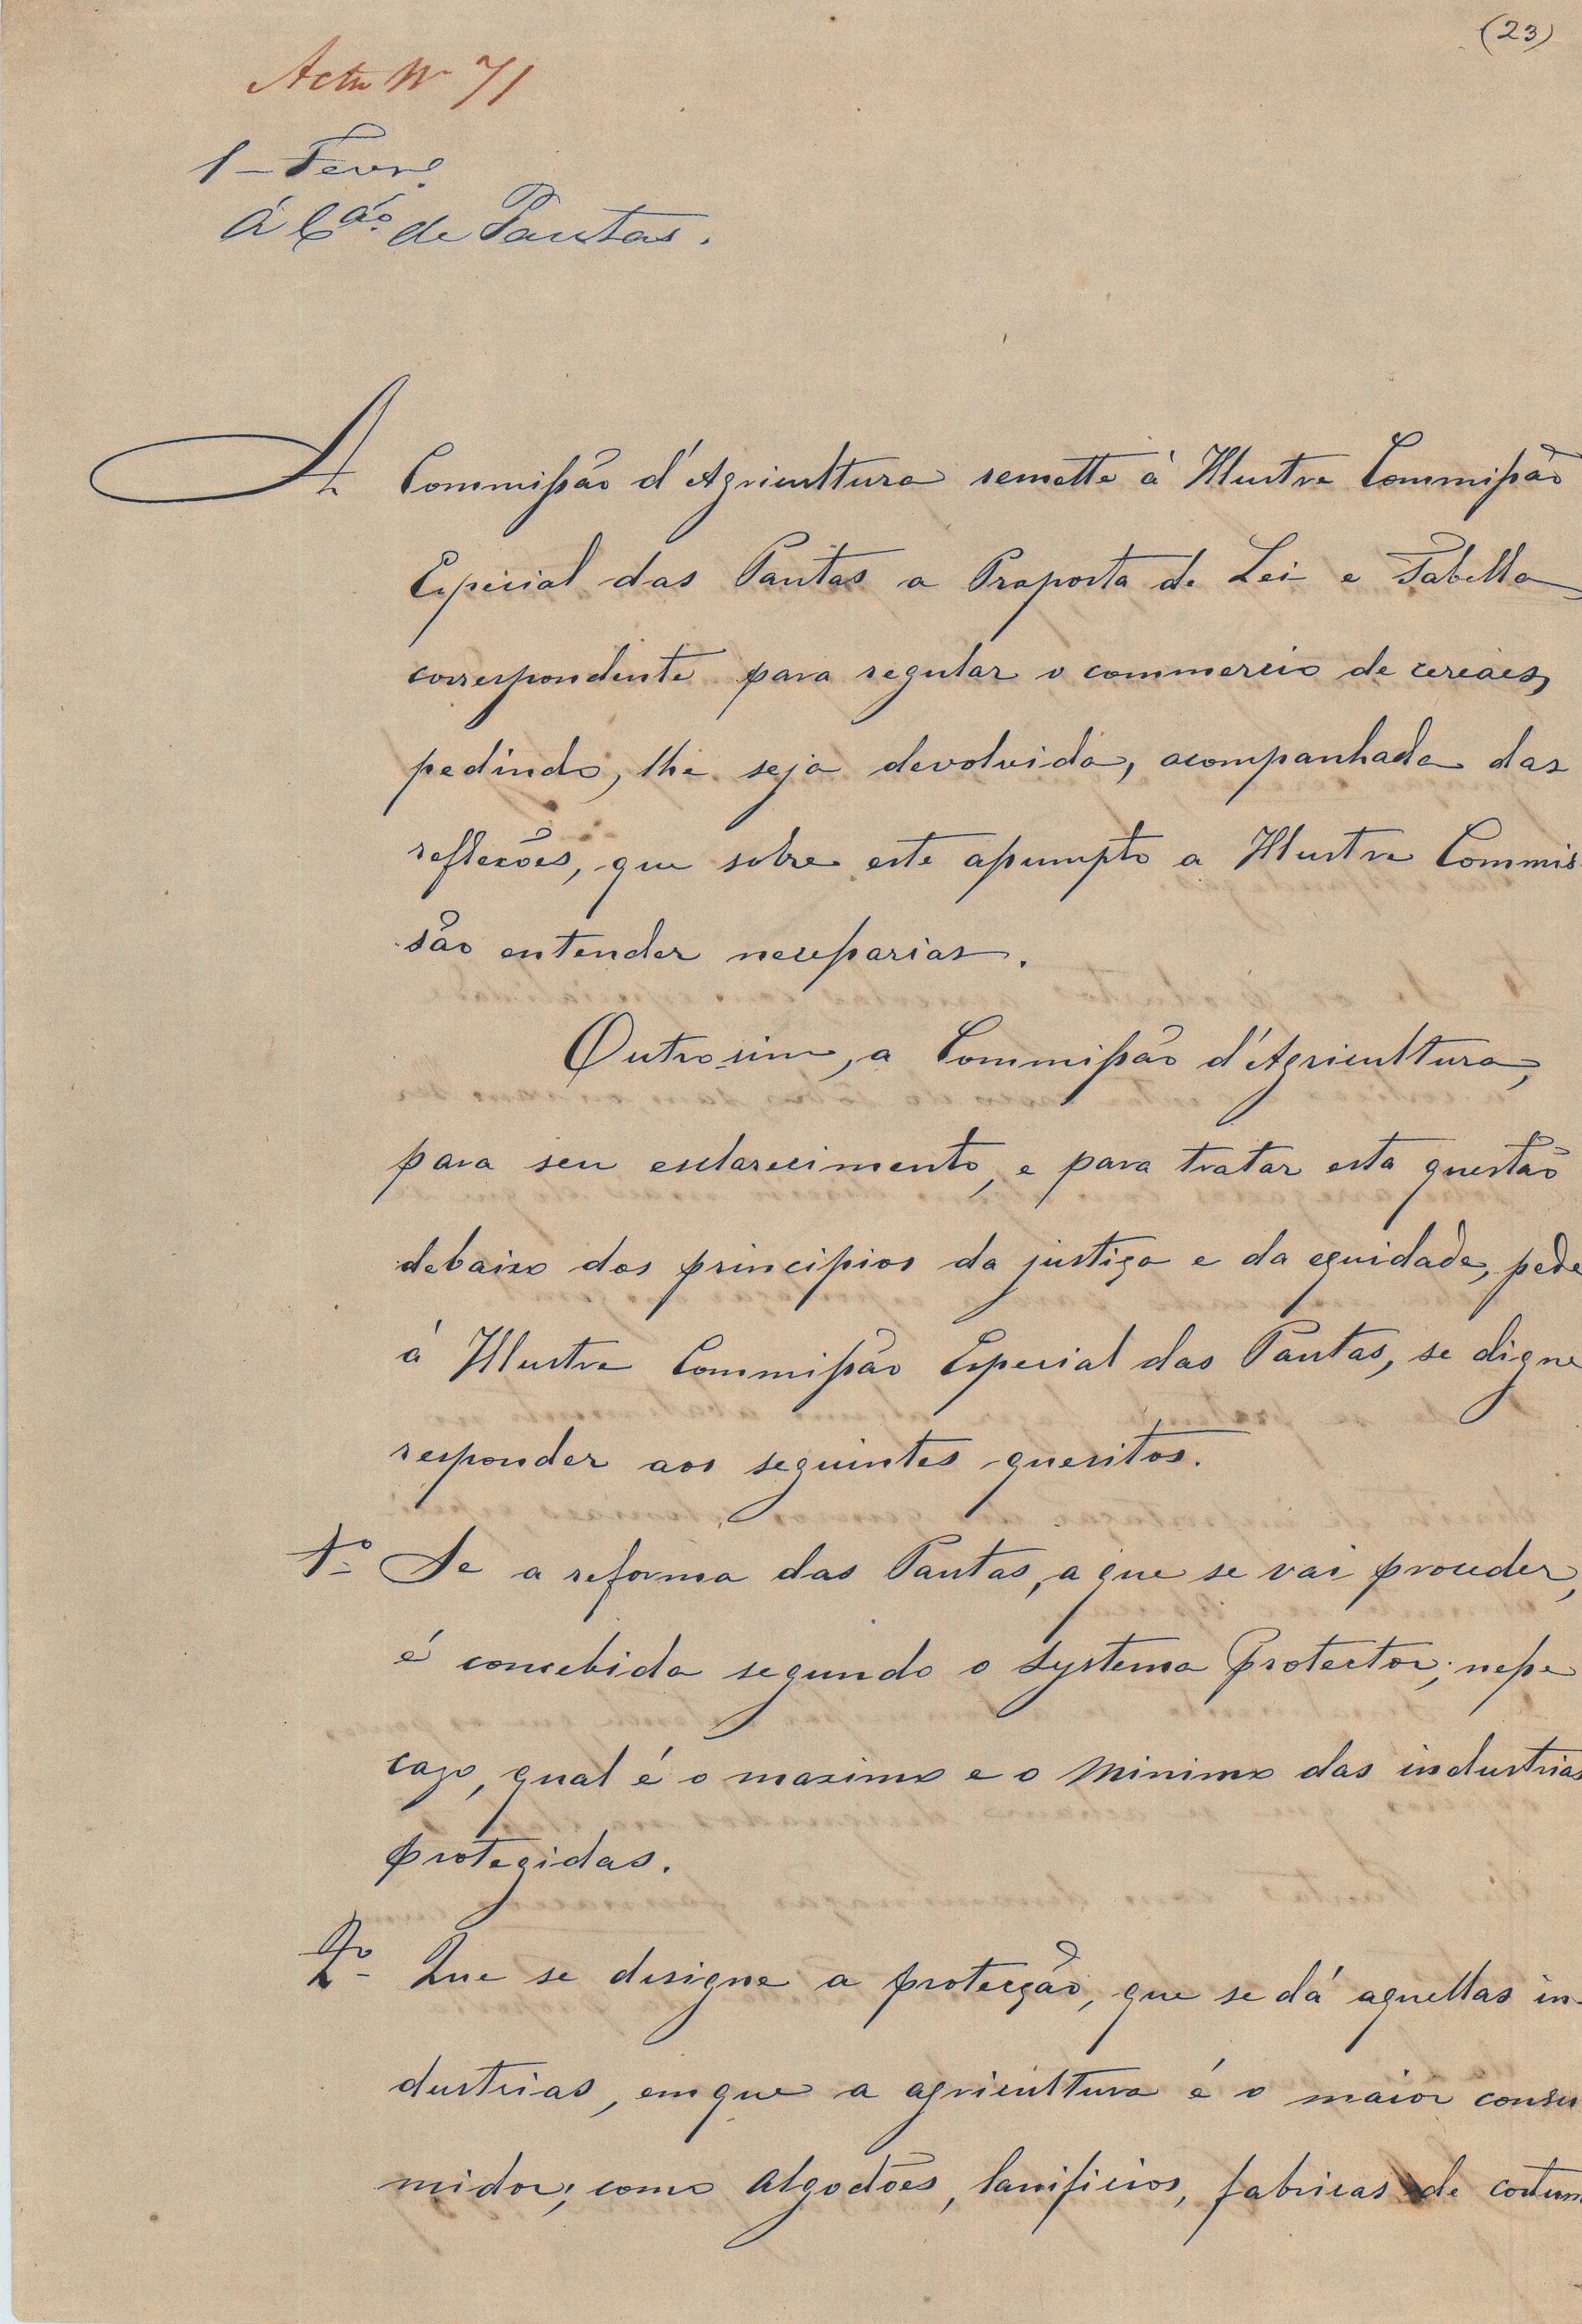 (23)
Acta Nº 71
1 - Fevrº
Á Cãо de Pautas.
A Commissão d'Agricultura remette á Illustre Commissão
Especial das Pautas a Proposta de Lei e Tabella
correspondente para regular o commercio de cereaes,
pedindo, lhe seja devolvida, acompanhada das
reflexões, que sobre este assumpto a Illustre Commis
são entender necessarias.
Outrosim, a Commissão d'Agricultura,
para seu esclarecimento, e para tratar esta questão
debaixo dos principios da justiça e da equidade, pede
á Illustre Commissão Especial das Pautas, se digne
responder aos seguintes quesitos.
1º Se a reforma das Pautas, a que se vai proceder,
é concebida segundo o systema Protector; nesse
cazo, qual é o maximo e o minimo das industrias
protegidas.
2º Que se designe a protecção, que se dá aquellas in-
dustrias, em que a agricultura é o maior consu
midor; como algodões, lanificios, fabricas de cortum